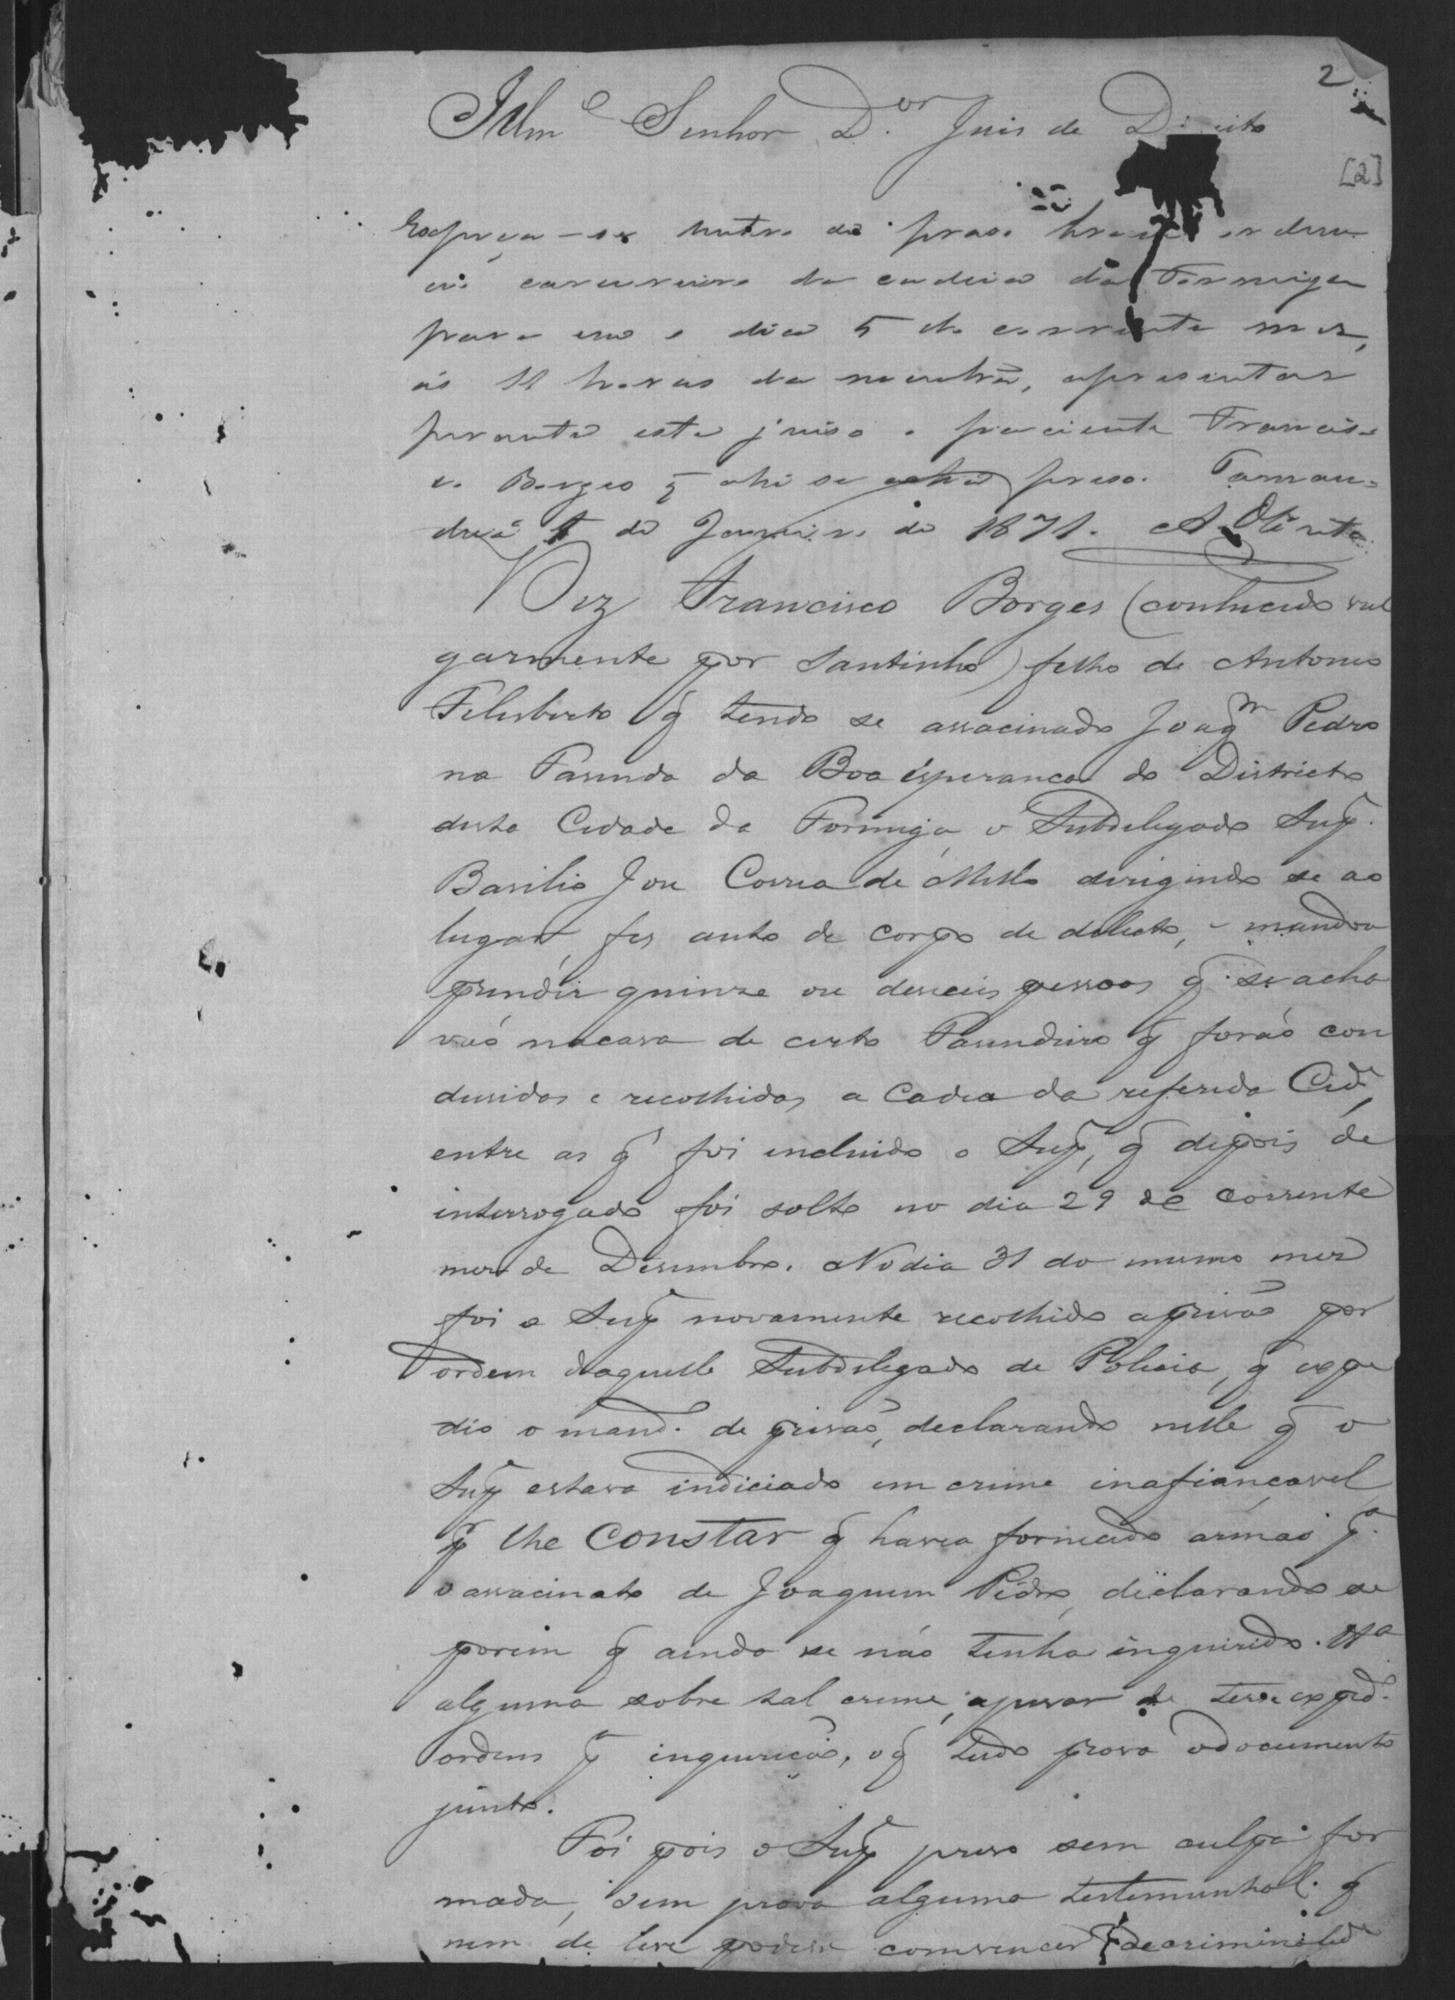 2
Illm.e Senhor D.or Juis de Direito
[2]
Expeça-se dentro do praso ordem
ao carcereiro da cadeia da Formiga
para no dia 5 do corrente mez,
ás 11 horas da manhã, apresentar
perante este juiso o paciente Francis-
co Borges q̃ ahi se acha preso. Taman-
duá 1 de Janeiro de 1871.
Diz Francisco Borges (conhecido vul
garmente por Santinho) filho de Antonio
Felisberto q̃ tendo se assacinado Joaq.m Pedro
na Fasenda da Boa Esperança do Districto
desta Cidade da Formiga, o Subdelegado Sup.
Basilio Jose Correa de Mello dirigindo se ao
lugar, fes auto de corpo de delicto, e mandou
prender quinze ou deseceis pessoas q̃ se acha
vaõ na casa de certo Fasendeiro q̃ foraõ con
dusidas e recolhidas a Cadea da referida Cid.e,
entre as q̃ foi incluido o Sup.e, q̃ depois de
interrogado foi solto no dia 29 de corrente
mez de Desembro. No dia 31 do mesmo mez
foi o Sup.e novamente recolhido a prisaõ por
ordem daquelle Subdelegado de Policia, q̃ expe
dio o mand.o de prisaõ, declarando nelle q̃ o
Sup.e estava indiciado em crime inafiançavel
p.r lhe constar q̃ havia fornecido armas p.a
o assacinato de Joaquim Pedro, declarando se
porem q̃ ainda se naõ tenha inquirido t.a
alguma sobre tal crime, apesar de ter exped.o
ordens p.a inquiriçaõ, o q̃ tudo prova o documento
junto.
Foi pois o Sup.e preso sem culpa for
mada, sem prova alguma testemunhal q̃
nem de leve podesse convencer de criminalid.e